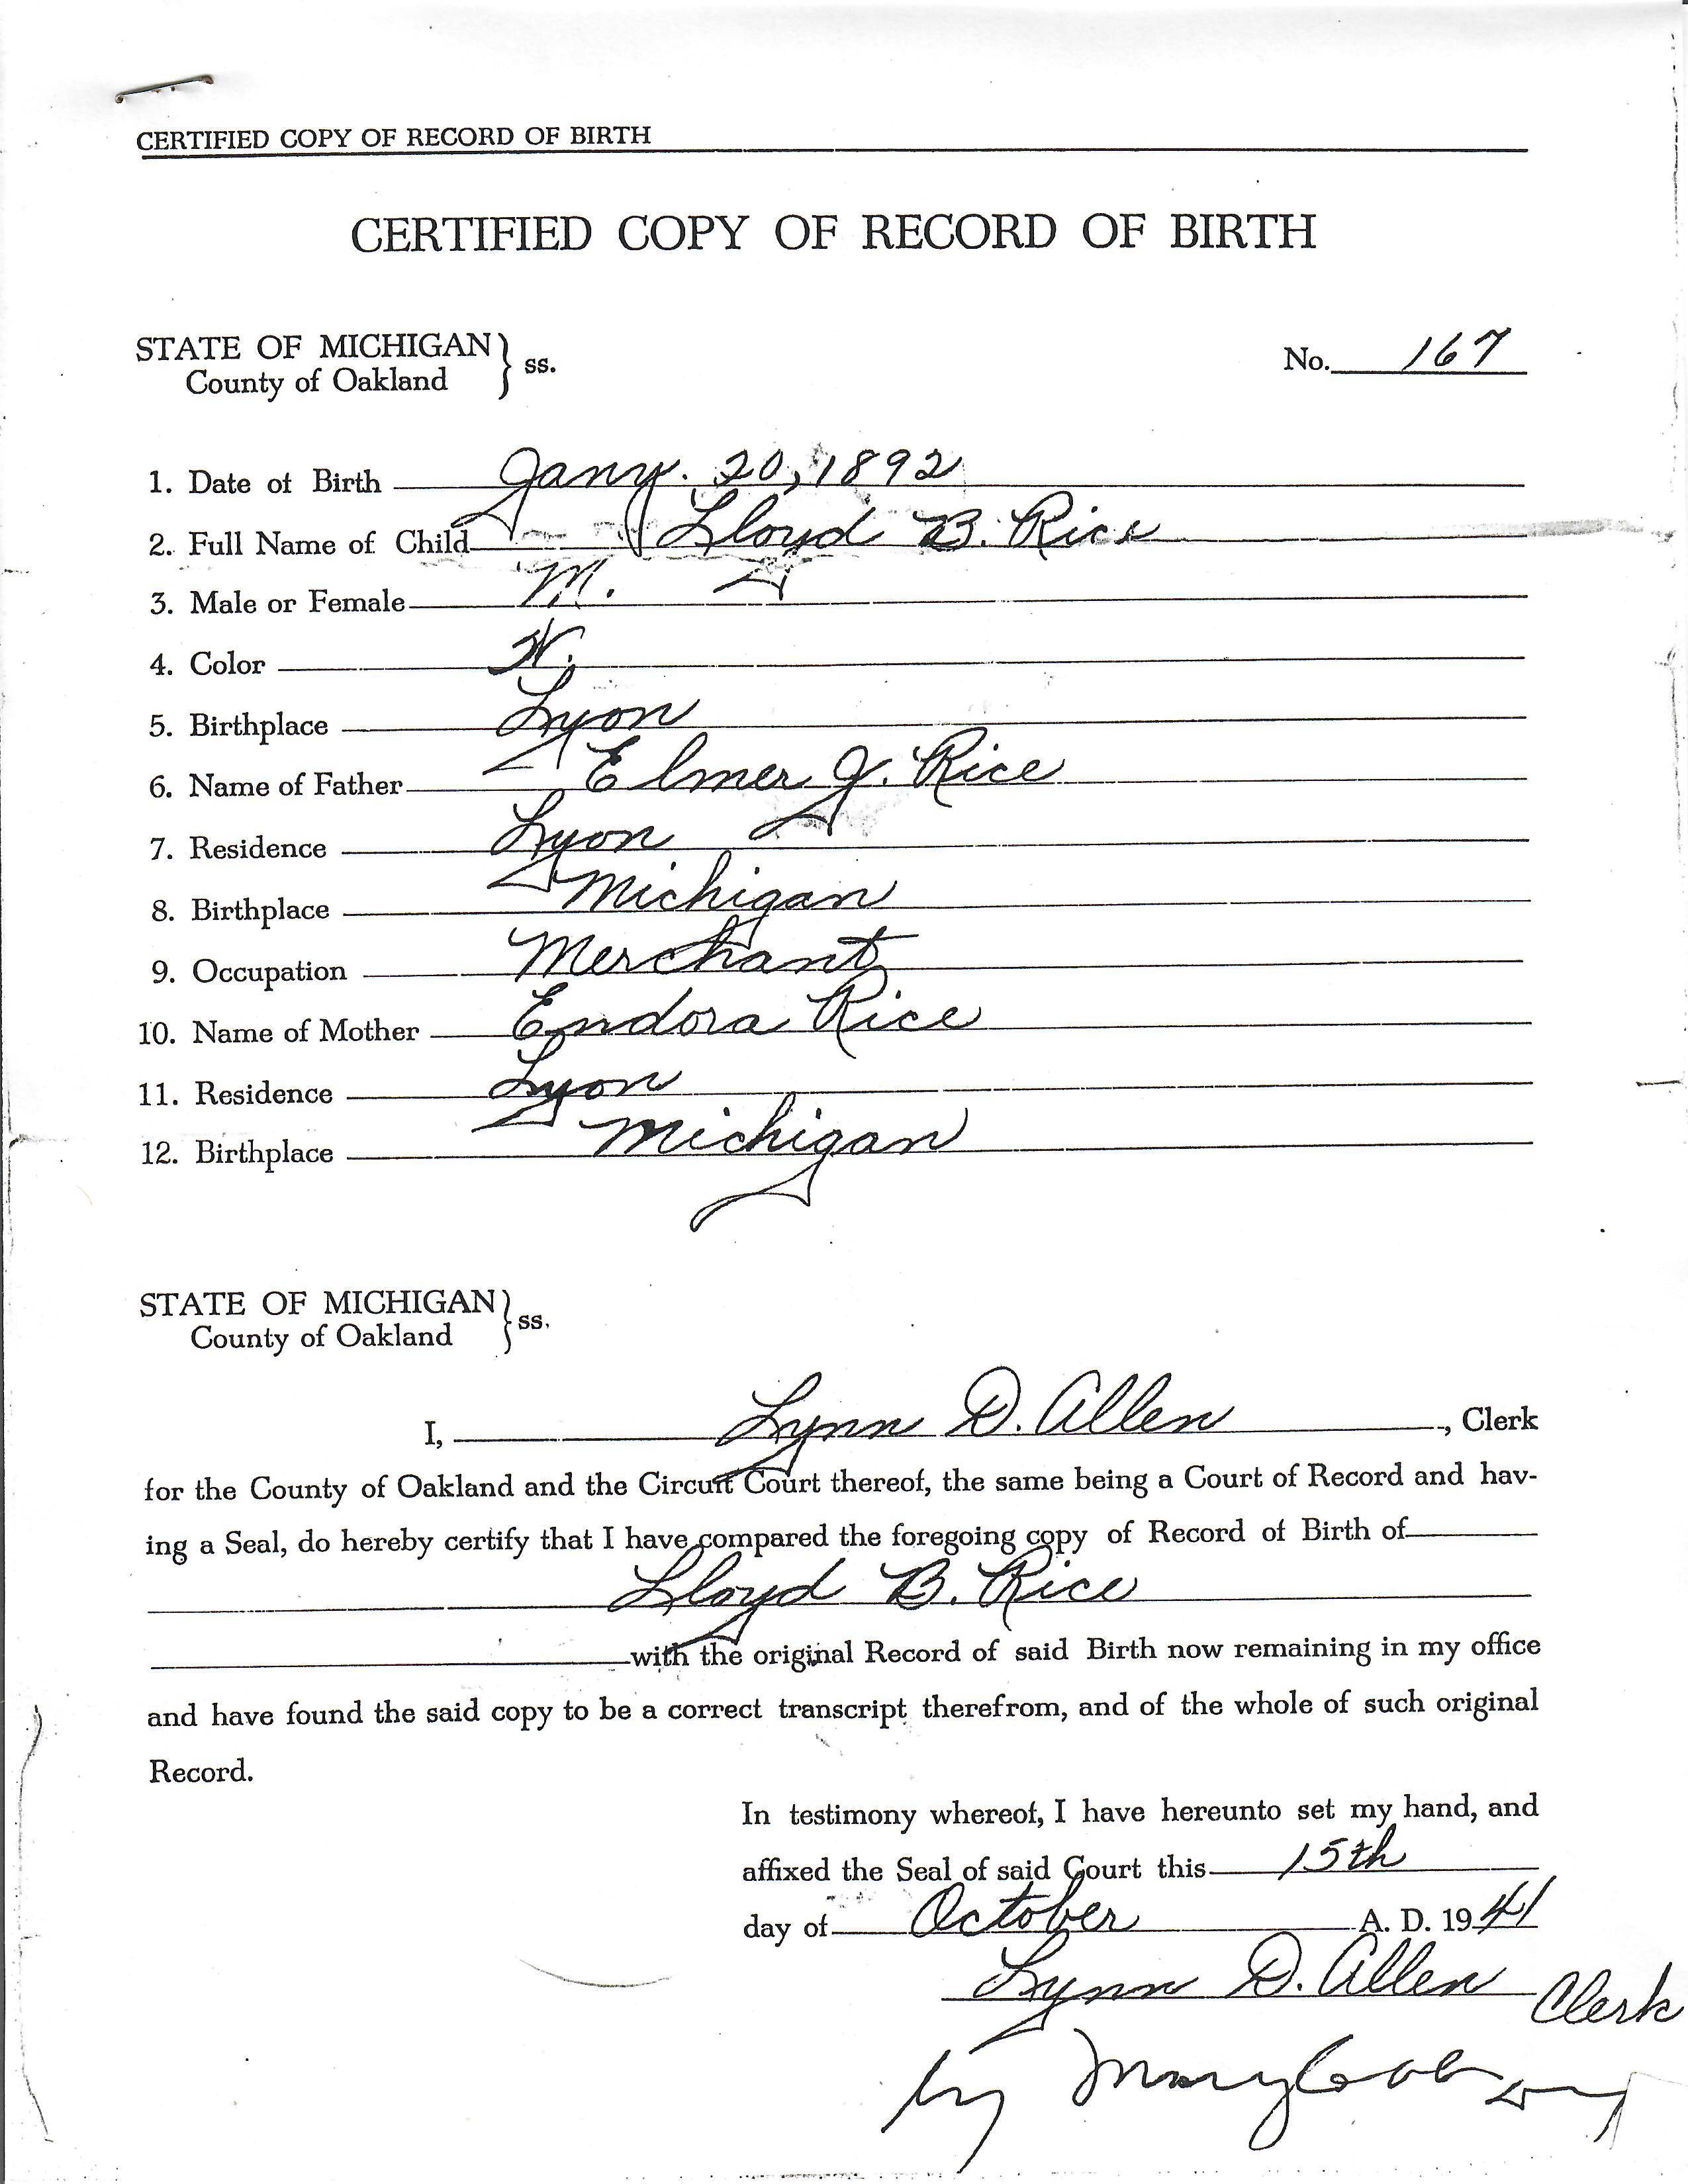 CERTIFIED COPY OF RECORD OF BIRTH
CERTIFIED COPY OF RECORD OF BIRTH
STATE OF MICHIGAN } ss.
County of Oakland
No. 167
1. Date of Birth Jany. 20, 1892
2. Full Name of Child Lloyd B. Rice
3. Male or Female M.
4. Color W.
5. Birthplace Lyon
6. Name of Father Elmer J. Rice
7. Residence Lyon
8. Birthplace Michigan
9. Occupation Merchant
10. Name of Mother Endora Rice
11. Residence Lyon
12. Birthplace Michigan
STATE OF MICHIGAN } ss.
County of Oakland
I, Lynn D. Allen, Clerk
for the County of Oakland and the Circuit Court thereof, the same being a Court of Record and hav-
ing a Seal, do hereby certify that I have compared the foregoing copy of Record of Birth of
Lloyd B. Rice
with the original Record of said Birth now remaining in my office
and have found the said copy to be a correct transcript therefrom, and of the whole of such original
Record.
In testimony whereof, I have hereunto set my hand, and
affixed the Seal of said Court this 15th
day of October A. D. 1941
Lynn D. Allen Clerk
by Mary